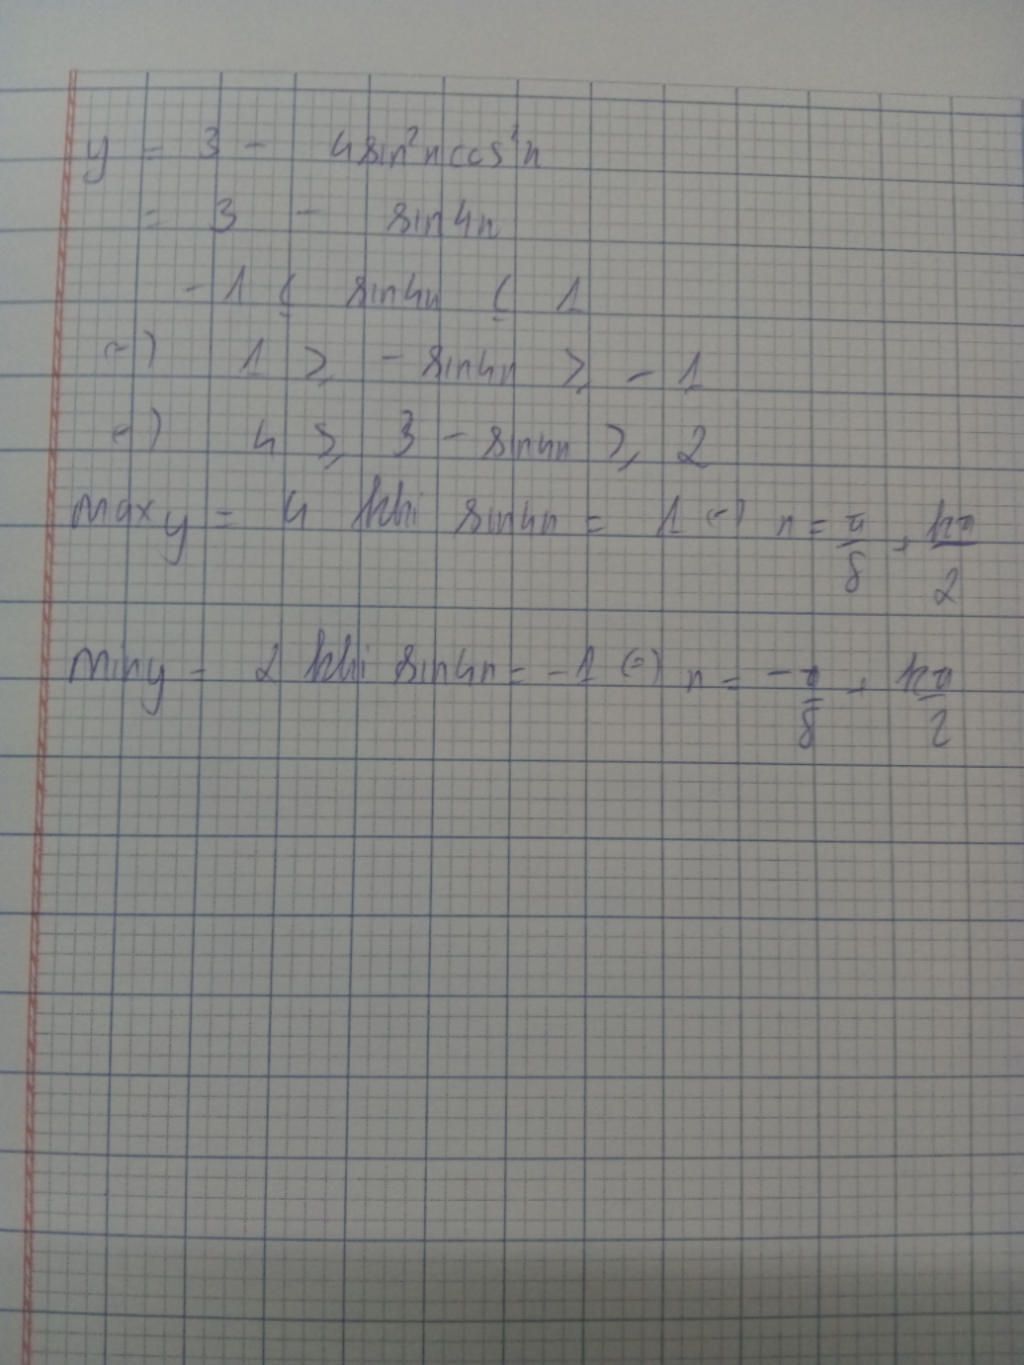 y = 3 - 4sin²x cos²x
= 3 - sin4x
-1 ≤ sin4x ≤ 1
(=) 1 ≥ -sin4x ≥ -1
(=) 4 ≥ 3 - sin4x ≥ 2
max y = 4 khi sin4x = 1 (=) x = π/8 + kπ/2
min y = 2 khi sin4x = -1 (=) x = -π/8 + kπ/2